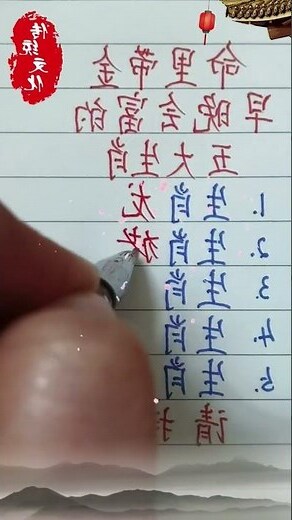 传统
文化
命里带金
早晚会富的
五大生肖
1. 生肖 龙
2. 生肖
3. 生肖
4. 生肖
5. 生肖
请